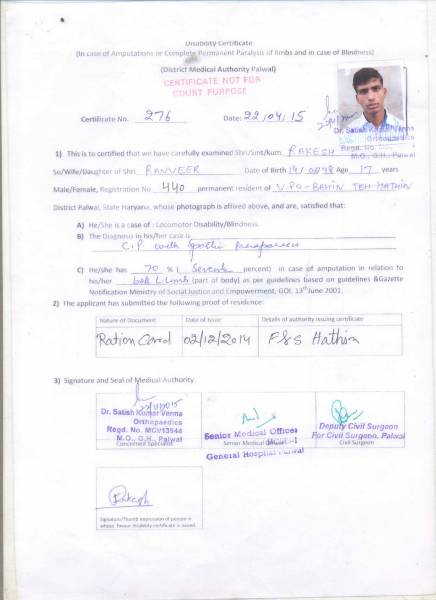 Disability Certificate
(In case of Amputations or Complete Permanent Paralysis of limbs and in case of Blindness)
(District Medical Authority Palwal)
CERTIFICATE NOT FOR
COURT PURPOSE
Certificate No. 276 Date: 22/04/15
Dr. Satish Kumar Verma
Orthopaedics
Regd. No.
M.O., G.H., Palwal
1) This is to certified that we have carefully examined Shri/Smt/kum. RAKESH
So/Wife/Daughter of Shri RANVEER Date of Birth Age 17 years
Male/Female, Registration No. 440 permanent resident of V.PO-BAHIN TEH-HATHIN
District Palwal, State Haryana, whose photograph is affixed above, and are, satisfied that:
A) He/She is a case of : Locomotor Disability/Blindness.
B) The Diagnosis in his/her case is
C.P. with Spastic Paraparesis
C) He/she has 70 % ( Seventy percent) in case of amputation in relation to
his/her both L.Limb (part of body) as per guidelines based on guidelines &Gazette
Notification Ministry of Social Justice and Empowerment, GOI, 13th June 2001.
2) The applicant has submitted the following proof of residence:
Nature of Document Date of Issue Details of authority issuing certificate
Ration Card 02/12/2014 F&S Hathin
3) Signature and Seal of Medical Authority.
Dr. Satish Kumar Verma
Orthopaedics
Regd. No. MCI/13544
M.O., G.H., Palwal
Concerned Specialist
Senior Medical Officer
Senior Medical Officer
General Hospital Palwal
Deputy Civil Surgeon
For Civil Surgeon, Palwal
Civil Surgeon
Rakesh
Signature/Thumb impression of person in
whose favour disability certificate is issued.